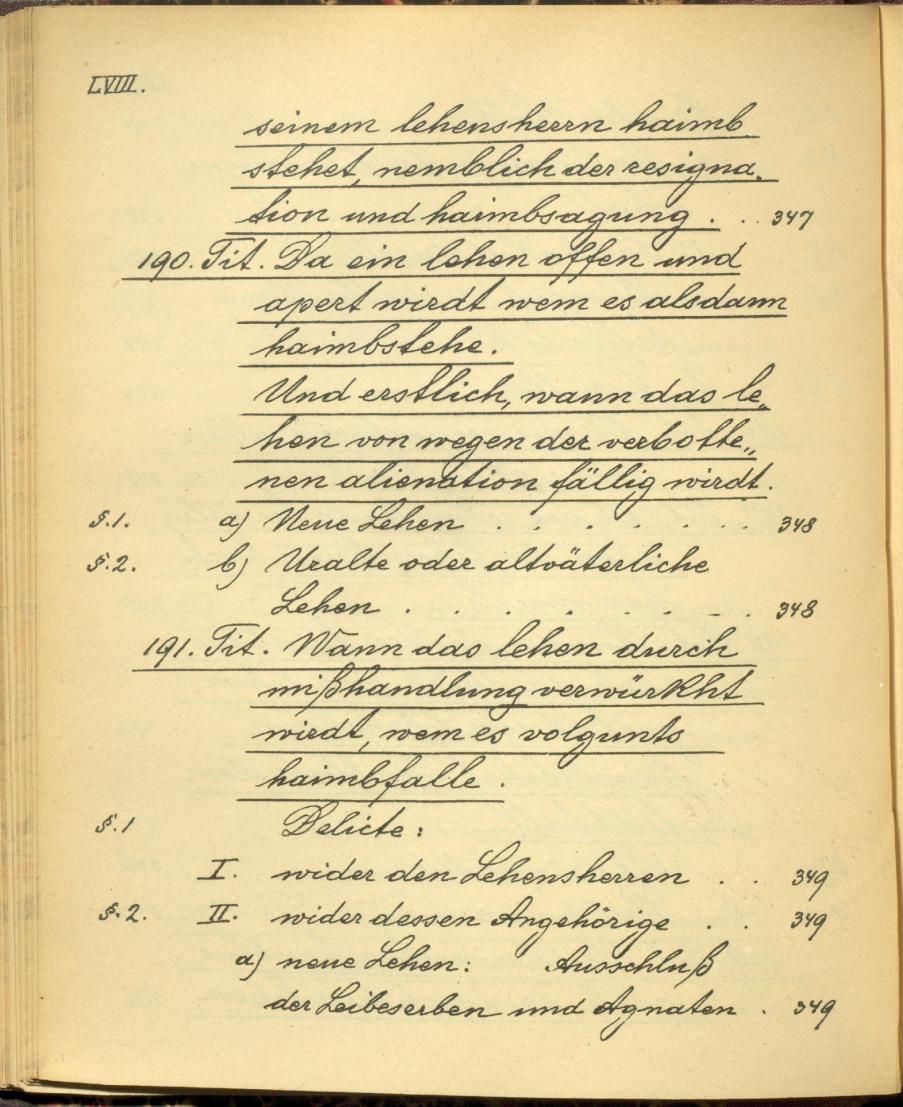 LVIII.
seinem lehensherrn haimb
stehet, nemblich der resigna„
tion und haimbsagung . . . 347
190. Tit. Da ein lehen offen und
apert wirdt wem es alsdann
haimbstehe.
Und erstlich, wann das le„
hen von wegen der verbotte„
nen alienation fällig wirdt.
§.1. a) Neue Lehen . . . . . . . 348
§.2. b) Uralte oder altväterliche
Lehen . . . . . . . 348
191. Tit. Wann das lehen durch
mißhandlung verwürkht
wirdt, wem es volgunts
haimbfalle .
§.1 Delicte:
I. wider den Lehensherren . . 349
§.2. II. wider dessen Angehörige . . 349
a) neue Lehen: Ausschluß
der Leibeserben und Agnaten . 349